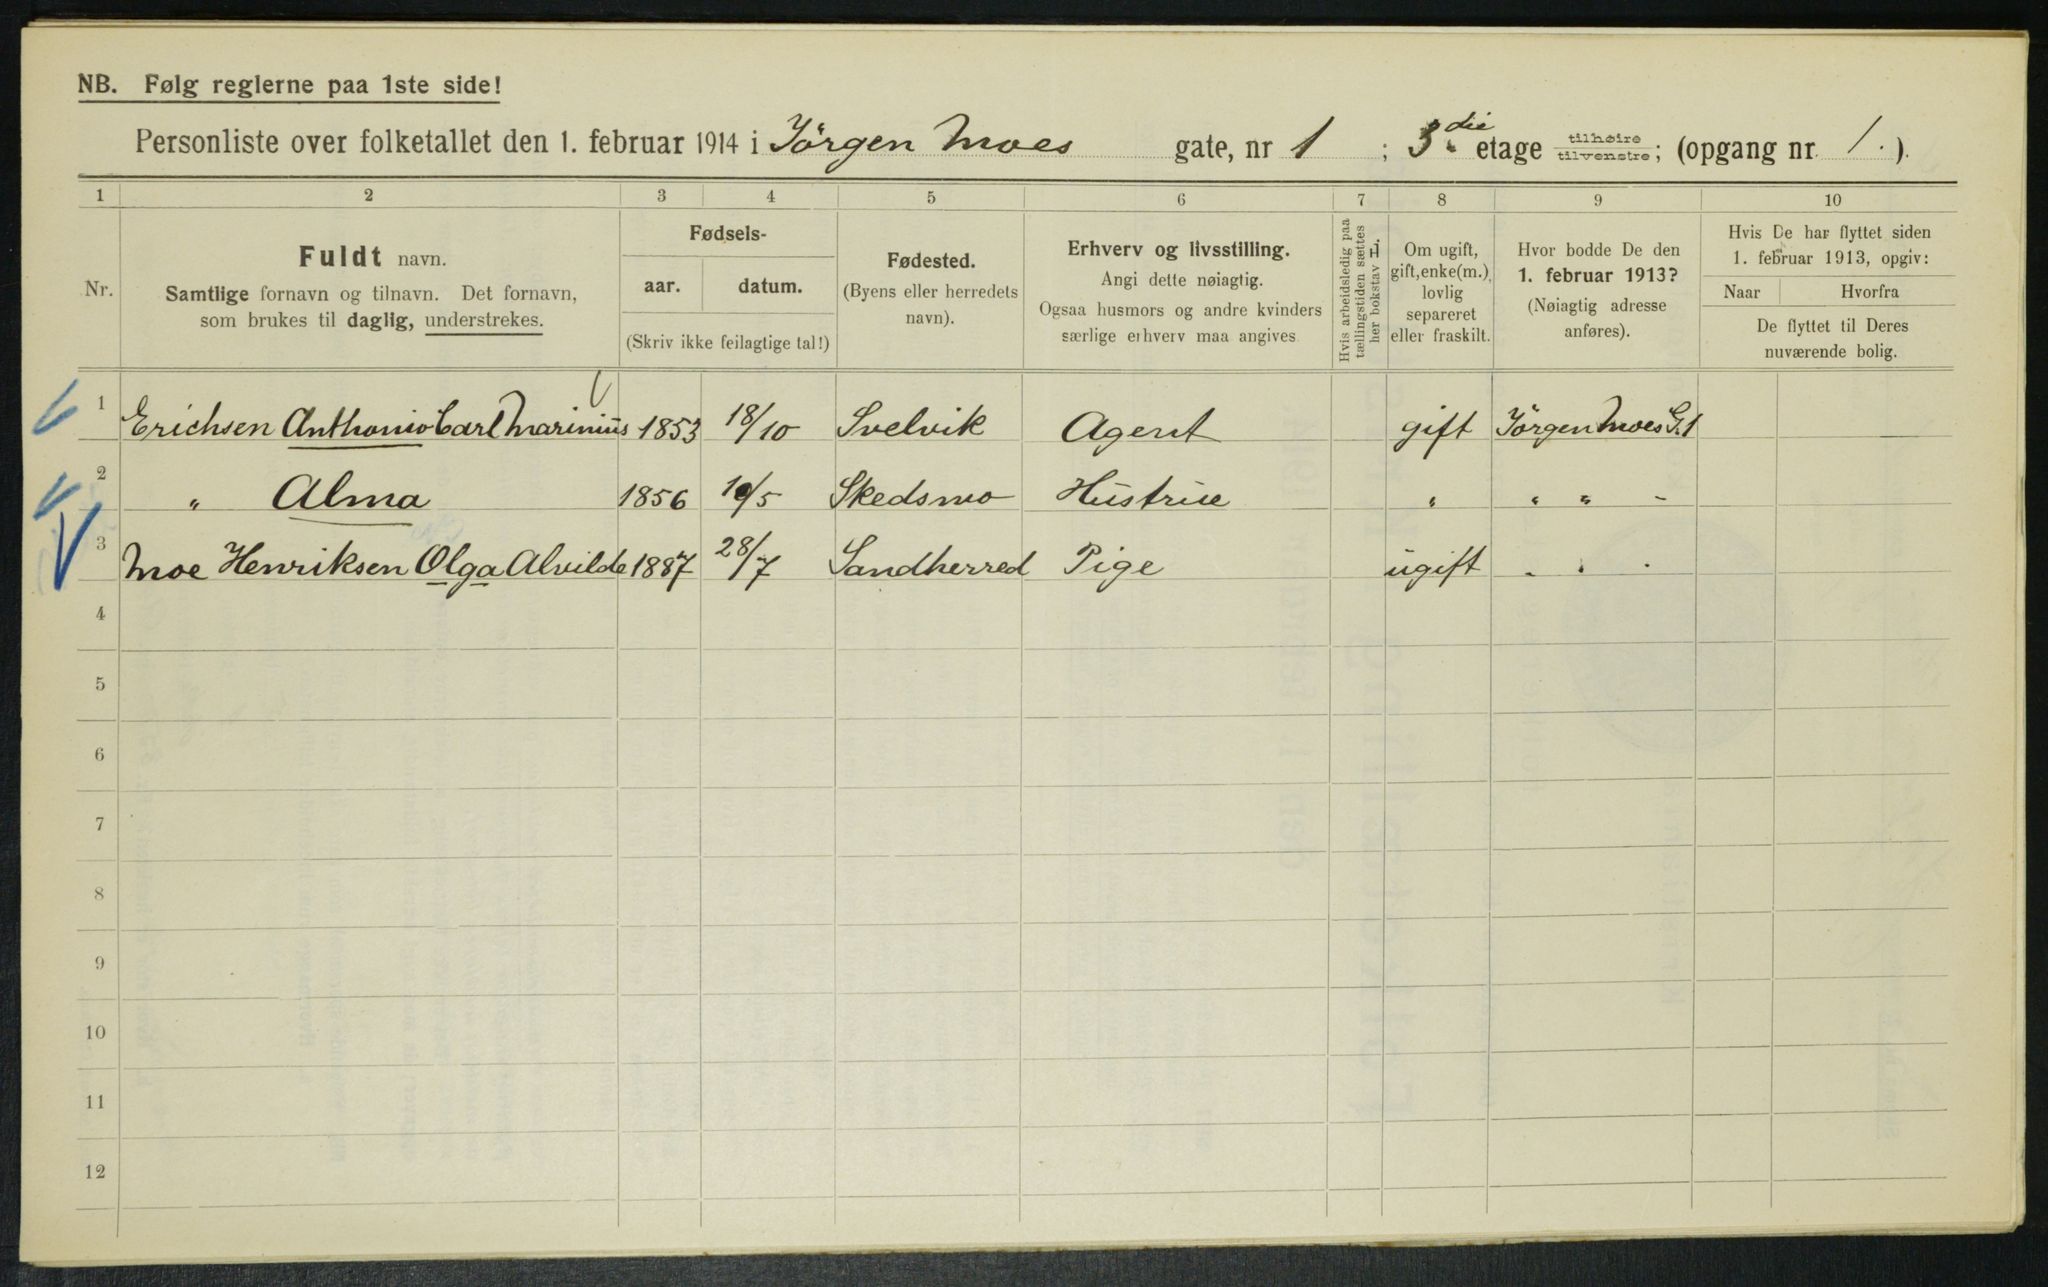 NB. Følg reglerne paa 1ste side!
Personliste over folketallet den 1. februar 1914 i Jörgen Moes gate, nr 1 ; 3die etage tilhøire tilvenstre; (opgang nr. 1. ).
1 2 3 4 5 6 7 8 9 10
Nr.
Fuldt navn.
Samtlige fornavn og tilnavn. Det fornavn,
som brukes til daglig, understrekes.
Fødsels-
aar. datum.
(Skriv ikke feilagtige tal!)
Fødested.
(Byens eller herredets
navn).
Erhverv og livsstilling.
Angi dette nøiagtig.
Ogsaa husmors og andre kvinders
særlige erhverv maa angives
Hvis arbeidsledig paa
tællingstiden sættes
her bokstav L.
Om ugift,
gift, enke(m.),
lovlig
separeret
eller fraskilt.
Hvor bodde De den
1. februar 1913?
(Nøiagtig adresse
anføres).
Hvis De har flyttet siden
1. februar 1913, opgiv:
Naar Hvorfra
De flyttet til Deres
nuværende bolig.
1 Erichsen Anthonio Carl Marinius 1853 18/10 Svelvik Agent gift Jörgen Moes G. 1
2 " Alma 1856 /5 Skedsmo Hustrue " " " -
3 Moe Henriksen Olga Alvilde 1887 28/7 Sandherred Pige ugift " " "
4
5
6
7
8
9
10
11
12